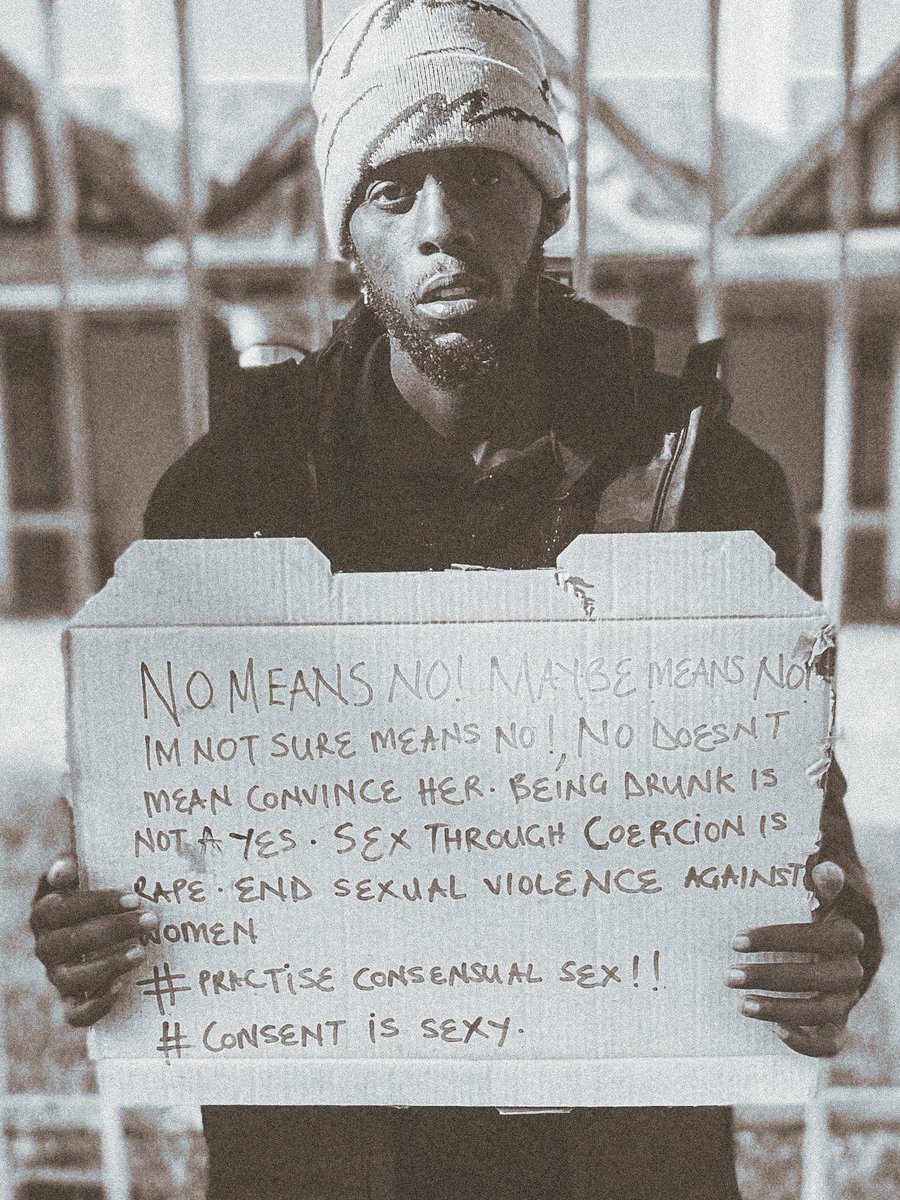 NO MEANS NO! MAYBE MEANS NO!
IM NOT SURE MEANS NO!, NO DOESNT
MEAN CONVINCE HER. BEING DRUNK IS
NOT A YES. SEX THROUGH COERCION IS
RAPE. END SEXUAL VIOLENCE AGAINST
WOMEN
# PRACTISE CONSENSUAL SEX!!
# CONSENT IS SEXY.